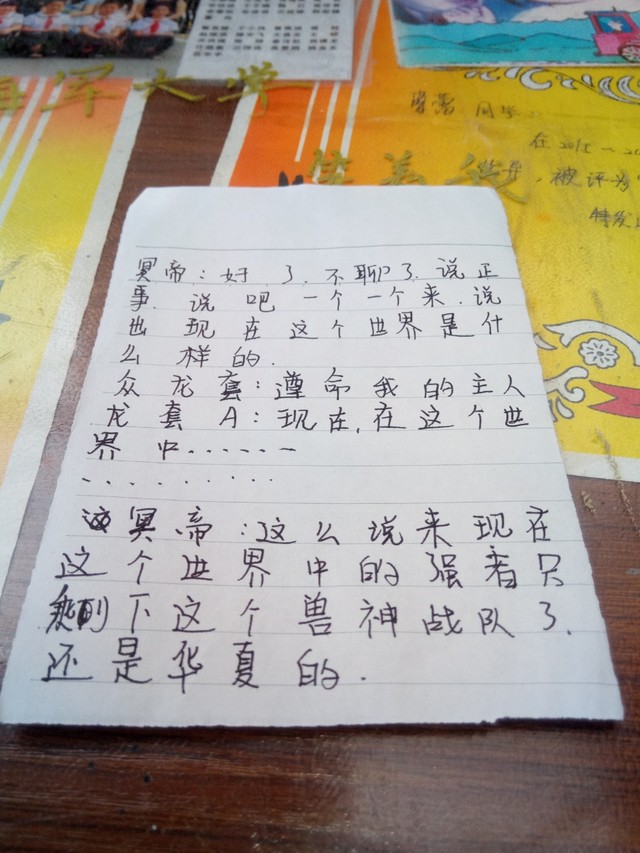 海军大学
肖蕾 同学:
在2015~20
学年,被评为
特发
冥帝:好了.不聊了.说正
事.说吧一个一个来.说
出现在这个世界是什
么样的.
众龙套:遵命我的主人
龙套A:现在,在这个世
界中......
.........
冥帝:这么说来现在
这个世界中的强者只
剩下这个兽神战队了.
还是华夏的.